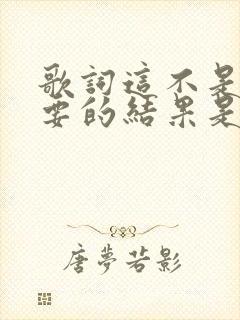 歌詞這不是
要的結果是
唐夢若影